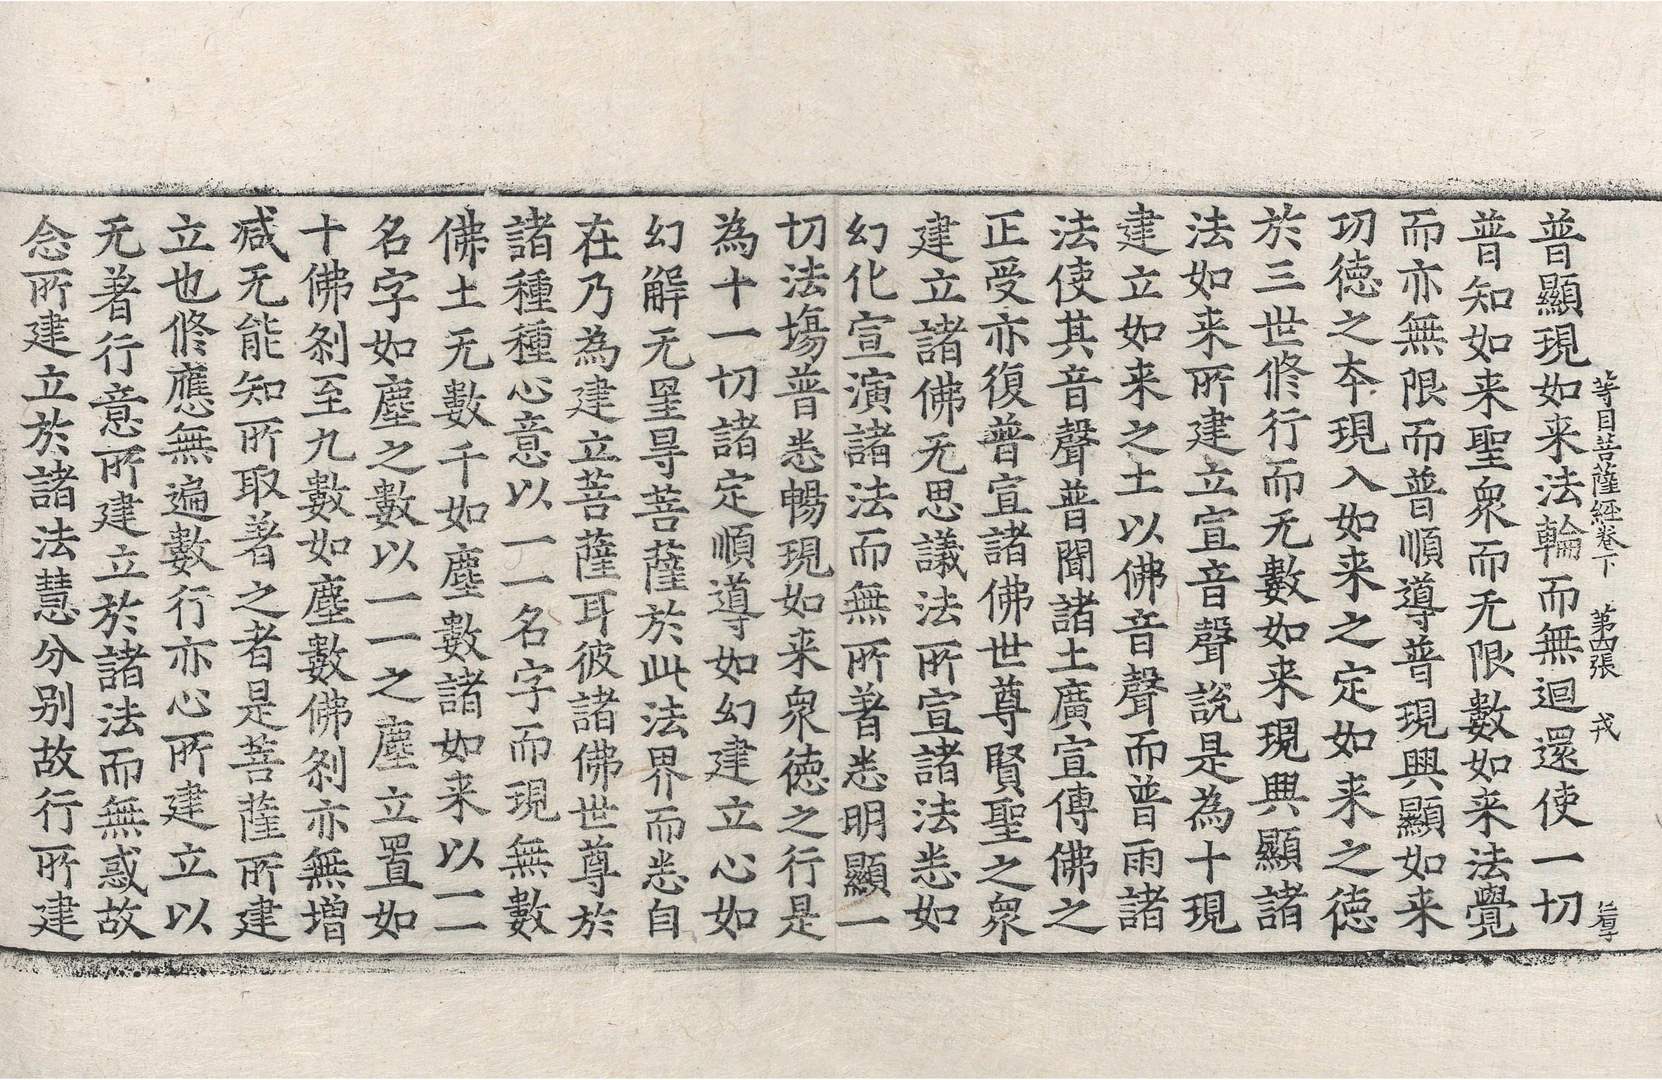 等目菩薩經卷下 第四張 戎
普顯現如来法輪而無迴還使一切
普知如来聖衆而无限數如来法覺
而亦無限而普順導普現興顯如来
功德之夲現入如来之定如来之德
於三世修行而无數如来現興顯諸
法如来所建立宣音聲說是為十現
建立如来之土以佛音聲而普雨諸
法使其音聲普聞諸土廣宣傳佛之
正受亦復普宣諸佛世尊賢聖之衆
建立諸佛无思議法所宣諸法悉如
幻化宣演諸法而無所著悉明顯一
切法塲普悉暢現如来衆德之行是
為十一切諸定順導如幻建立心如
幻解无罣㝵菩薩於此法界而悉自
在乃為建立菩薩耳彼諸佛世尊於
諸種種心意以一一名字而現無數
佛土无數千如塵數諸如来以一一
名字如塵之數以一一之塵立置如
十佛刹至九數如塵數佛刹亦無增
减无能知所取著之者是菩薩所建
立也修應無遍數行亦心所建立以
无著行意所建立於諸法而無惑故
念所建立於諸法慧分别故行所建